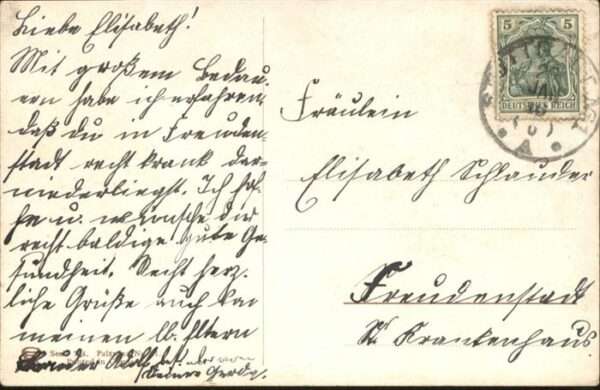 Liebe Elisabeth!
Mit großem Bedau-
ern habe ich erfahren,
daß du in Freuden-
stadt recht krank dar-
niederliegst. Ich hof-
fe u. wünsche dir
recht baldige gute Ge-
sundheit. Recht herz-
liche Grüße auch von
meinen lb. Eltern
Bruder Adolf
Fräulein
Elisabeth Schlauder
Freudenstadt
Krankenhaus
5 5
DEUTSCHES REICH